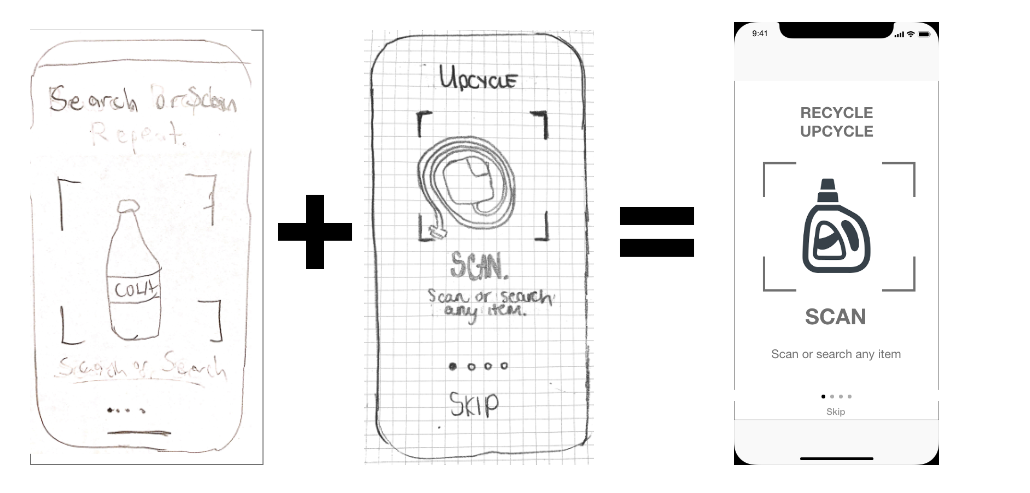 Search or Scan
Repeat.
COLA
Search or Search
UPCYCLE
SCAN.
Scan or search
any item.
SKIP
9:41
RECYCLE
UPCYCLE
SCAN
Scan or search any item
Skip